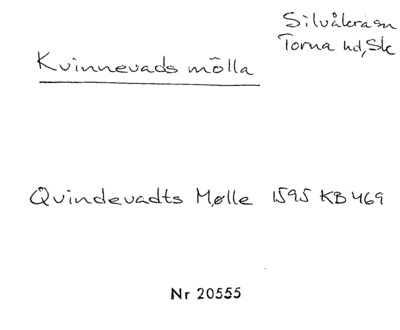 Silvåkra sn
Torna hd, Sk
Kvinnevads mölla
Qvindevadts Mølle 1595 KB 469
Nr 20555